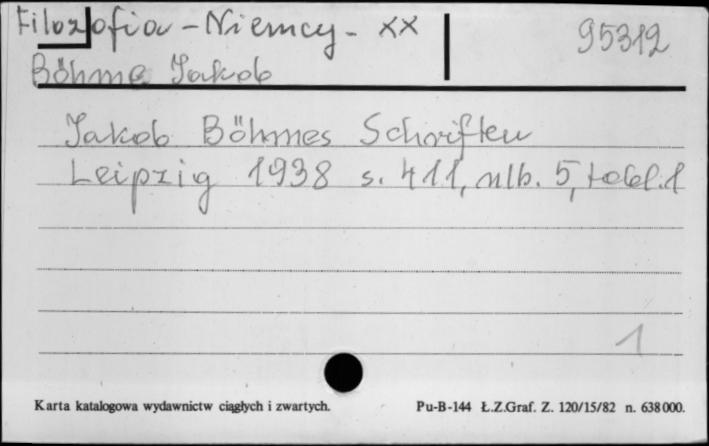 Filozofia - Niemcy - XX 95312
Böhme Jakob
Jakob Böhmes Schriften
Leipzig 1938 s. 411, nlb. 5, tabl. 1
1
Karta katalogowa wydawnictw ciągłych i zwartych. Pu-B-144 Ł.Z.Graf. Z. 120/15/82 n. 638000.